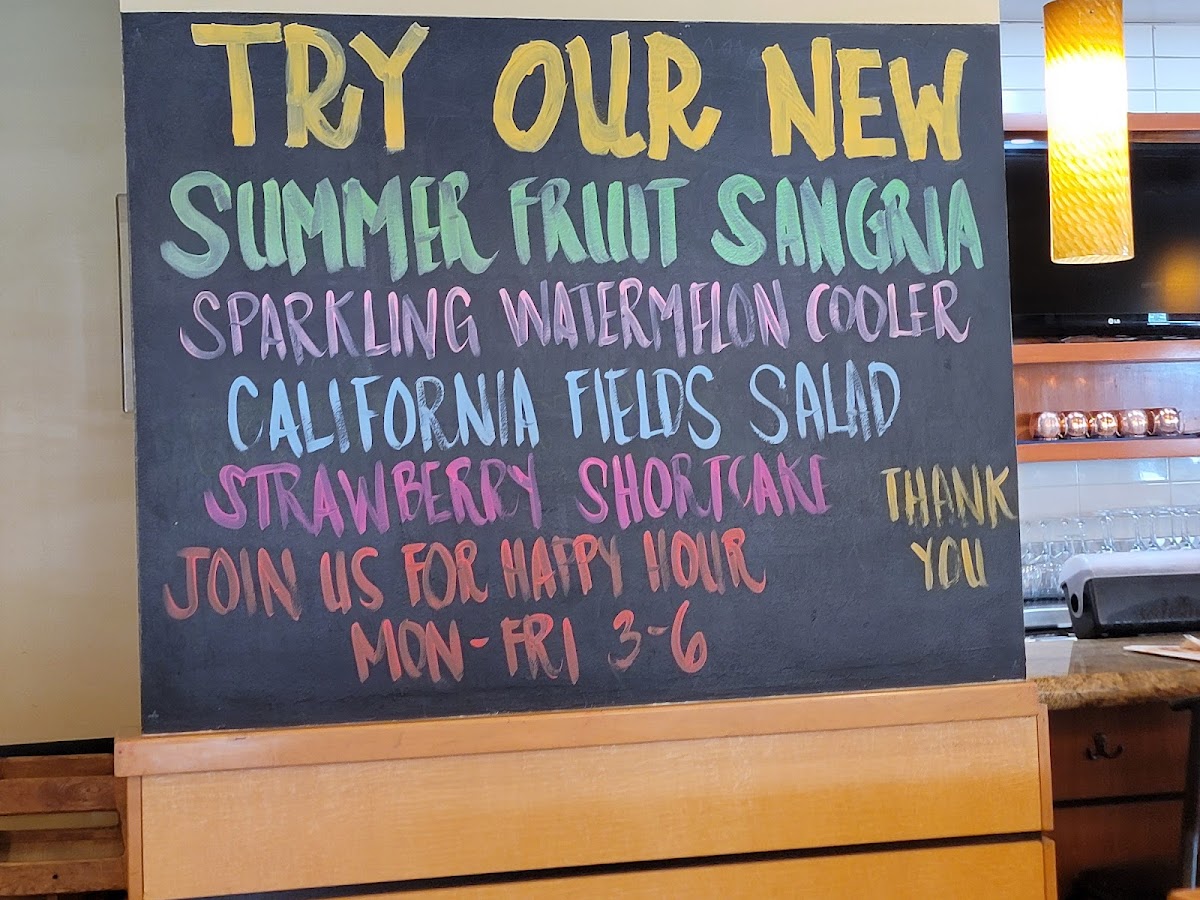 TRY OUR NEW
SUMMER FRUIT SANGRIA
SPARKLING WATERMELON COOLER
CALIFORNIA FIELDS SALAD
STRAWBERRY SHORTCAKE
JOIN US FOR HAPPY HOUR
MON-FRI 3-6
THANK
YOU
LG